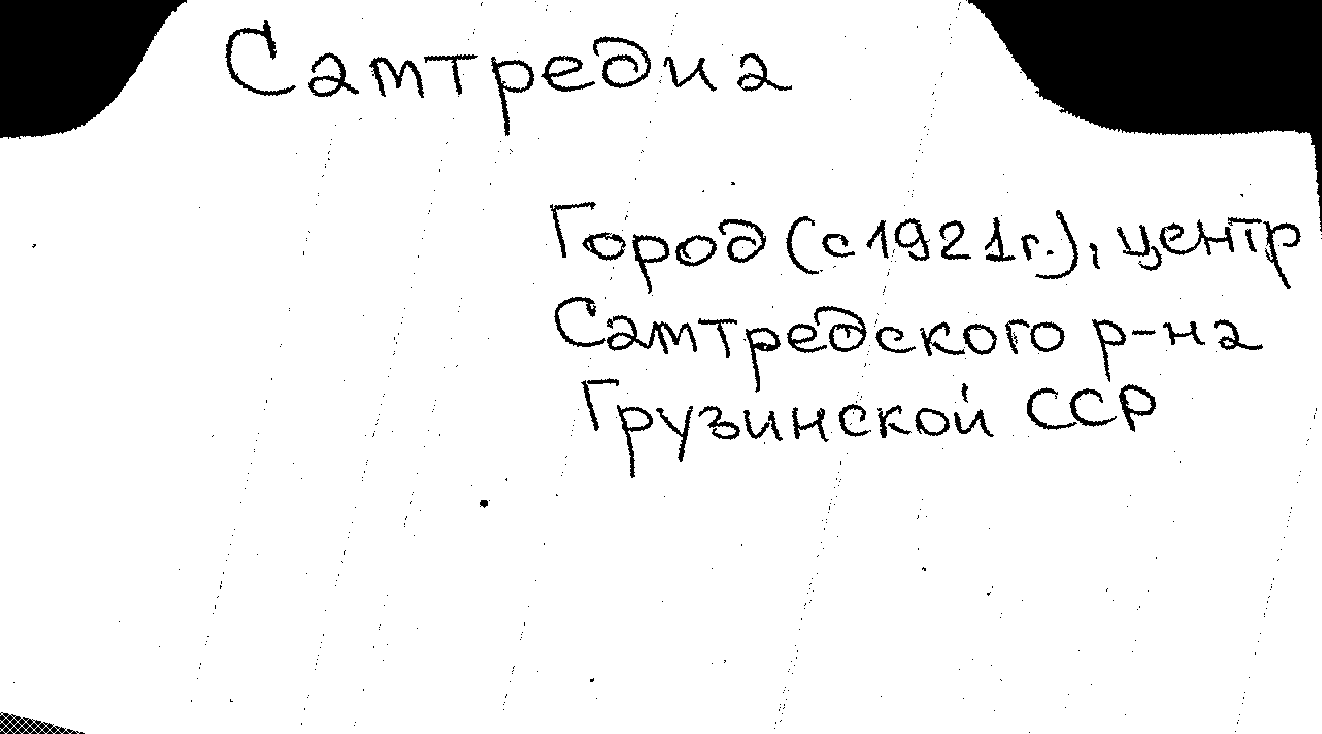 Самтредиа
Город (с 1921г.), центр
Самтредского р-на
Грузинской ССР